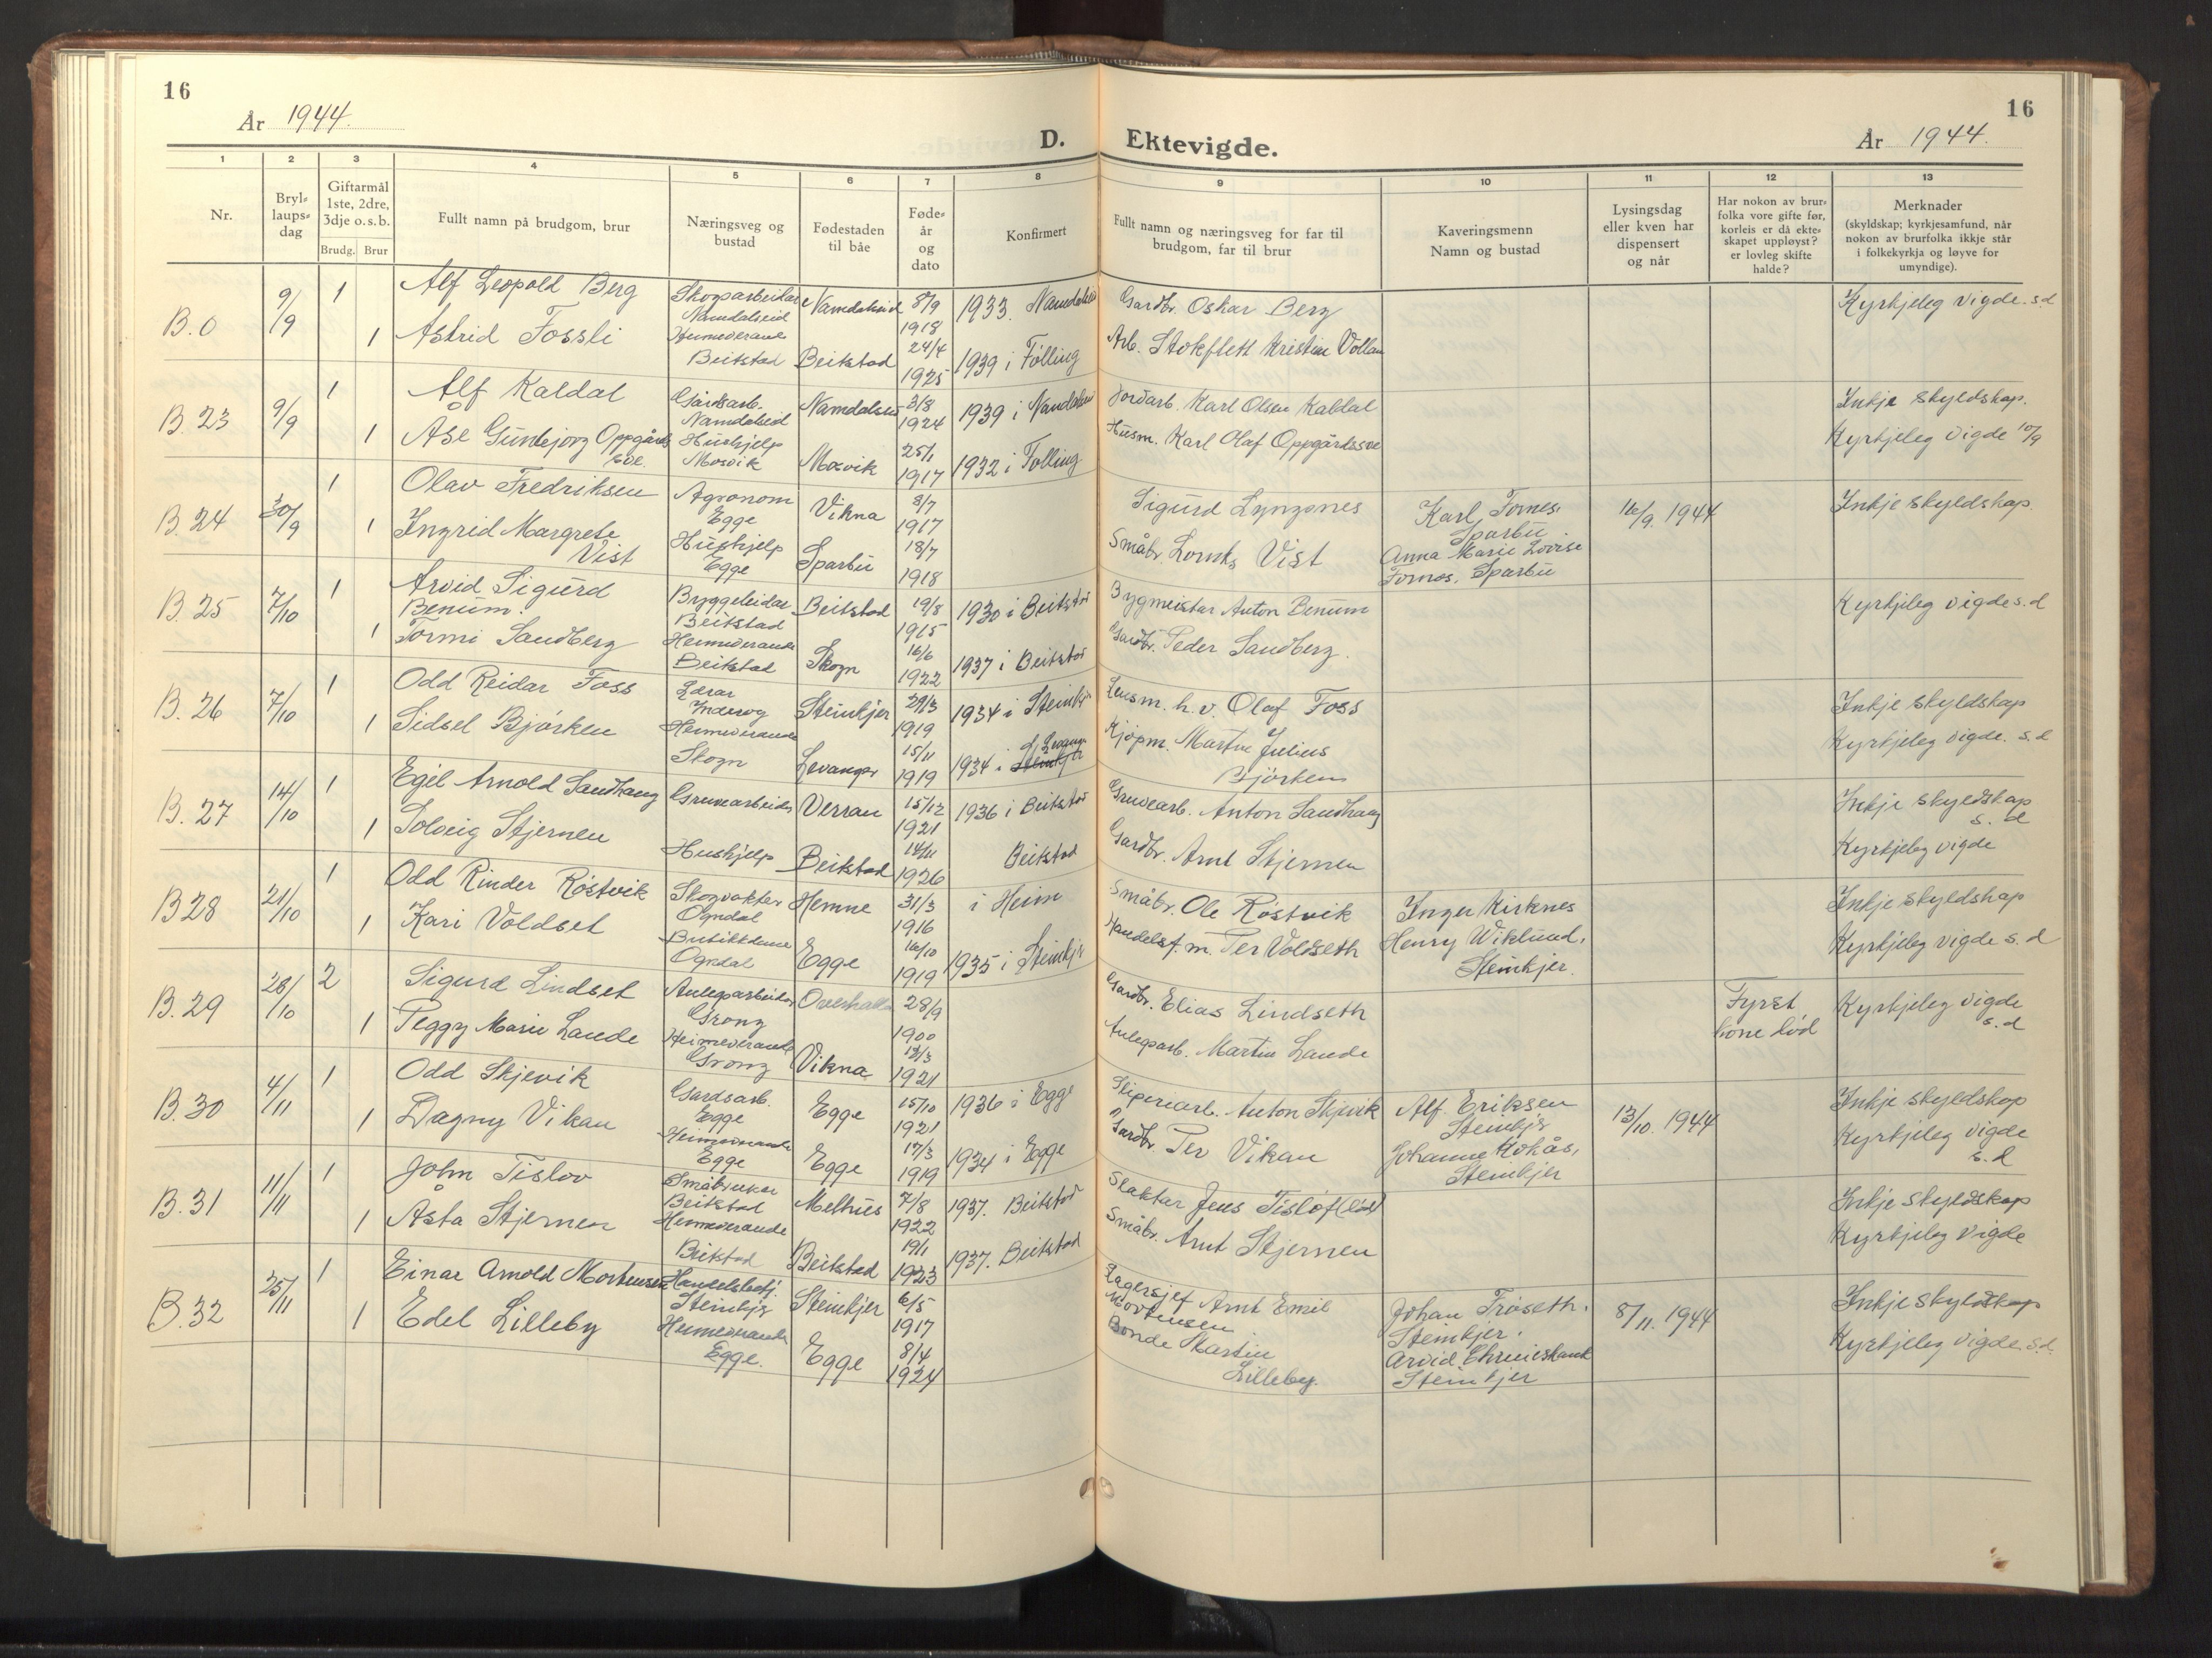 16
År 1944.
D.
1
2
3
4
5
6
7
8
Nr.
Bryl-
laups-
dag
Giftarmål
1ste, 2dre,
3dje o.s.b.
Brudg. Brur
Fullt namn på brudgom, brur
Næringsveg og
bustad
Fødestaden
til båe
Føde-
år
og
dato
Konfirmert
B.0
9/9
1
1
Alf Leopold Berg
Astrid Fossli
Skogsarbeidar
Namdalseid
Heimeverande
Beitstad
Namdalseid
Beitstad
8/9
1918
24/4
1925
1933. Namdalseid
1939 i Følling
B. 23
9/9
1
1
Alf Kaldal
Åse Gunbjørg Oppgårds
sve.
Gårdsarb.
Namdalseid
Hushjelp
Mosvik
Namdalseid
Mosvik
3/8
1924
25/1
1917
1939 i Namdalseid
1932 i Følling
B. 24
30/9
1
1
Olav Fredriksen
Ingrid Margrete
Vist
Agronom
Egge
Hushjelp
Egge
Vikna
Sparbu
8/7
1917
18/7
1918
B. 25
7/10
1
1
Arvid Sigurd
Benum.
Tormi Sandberg
Byggeleidar
Beitstad
Heimeverande
Beitstad
Beitstad
Skogn
19/8
1915
16/6
1922
1930 i Beitstad
1937 i Beitstad
B. 26
7/10
1
1
Odd Reidar Foss
Sidsel Bjørken
Lærar
Inderøy
Heimeverande
Skogn
Steinkjer
Levanger
29/3
1919
15/11
1919
1934 i Steinkjer
1934 i Steinkjer
B. 27
14/10
1
1
Egil Arnold Sandhaug
Solveig Stjernen
Gruvearbeider
Hushjelp
Verran
Beitstad
15/12
1921
14/11
1926
1936 i Beitstad
Beitstad
B 28
21/10
1
1
Odd Rinder Røstvik
Kari Voldset
Skogvakter
Ogndal
Butikkdame
Ogndal
Hemne
Egge
31/3
1916
16/10
1919
i Heim
1935 i Steinkjer
B. 29
28/10
2
1
Sigurd Lindset
Peggy Marie Lande
Anlegsarbeider
Grong
Heimeverande
Grong
Overhalla
Vikna
28/9
1900
13/3
1921
B. 30
4/11
1
1
Odd Skjevik
Dagny Vikan
Gardsarb.
Egge
Heimeverande
Egge
Egge
Egge
15/10
1921
17/3
1919
1936 i Egge
1934 i Egge
B. 31
11/11
1
1
John Tislov
Åsta Stjernen
Småbruker
Beitstad
Heimeverande
Beitstad
Melhus
Beitstad
7/8
1922
19/1
1923
1937. Beitstad
1937. Beitstad
B. 32
25/11
1
1
Einar Arnold Mortensen
Edel Lilleby
Handelsbetj.
Steinkjer
Heimeverande
Egge.
Steinkjer
Egge
6/5
1917
8/4
1924
16
Ektevigde.
År 1944.
9
10
11
12
13
Fullt namn og næringsveg for far til
brudgom, far til brur
Kaveringsmenn
Namn og bustad
Lysingsdag
eller kven har
dispensert
og når
Har nokon av brur-
folka vore gifte før,
korleis er då ekte-
skapet uppløyst?
er lovleg skifte
halde?
Merknader
(skyldskap; kyrkjesamfund, når
nokon av brurfolka ikkje står
i folkekyrkja og løyve for
umyndige).
Gardbr. Oskar Berg
Arb. Stokflett Kristian Vollan
Kyrkjeleg vigde. s.d
Jordarb. Karl Olsen Kaldal
Husm. Karl Olaf Oppgårdssve
Inkje skyldskap.
Kyrkjeleg vigde 10/9
Sigurd Lyngsnes
Småbr. Lornts Vist
Karl Fornes.
Sparbu
Anna Marie Lovise
Fornes, Sparbu
16/9. 1944
Inkje skyldskap.
Bygmeister Anton Benum
Gardbr. Peder Sandberg.
Kyrkjeleg vigde s.d
Lensm. h.v. Olaf Foss
Kjøpm. Martin Julius
Bjørken
Inkje skyldskap
Kyrkjeleg vigde. s.d
Gruvearb. Anton Sandhaug
Gardbr. Arnt Stjernen
Inkje skyldskap
s. d
Kyrkjeleg vigde
Småbr. Ole Røstvik
Handelsf.m. Per Voldseth
Inger Kirknes
Henry Wiklund,
Steinkjer.
Inkje skyldskap
Kyrkjeleg vigde s. d
Gardbr. Elias Lindseth
Anlegsarb. Martin Lande
Fyrst
kone død
Kyrkjeleg vigde
s. d
Sliperiarb. Anton Skjevik
Gardbr. Per Vikan
Alf Eriksen
Steinkjer
Johanne Mokås,
Steinkjer
13/10. 1944
Inkje skyldskap
Kyrkjeleg vigde
s. d
Slaktar Jens Tisløf (død)
Småbr. Arnt Stjernen
Inkje skyldskap
Kyrkjeleg vigde
Lagersjef Arnt Emil
Mortensen
Bonde Martin
Lilleby.
Johan Trøseth.
Steinkjer.
Arvid
Steinkjer
8/11. 1944
Inkje skyldskap
Kyrkjeleg vigde. s.d.